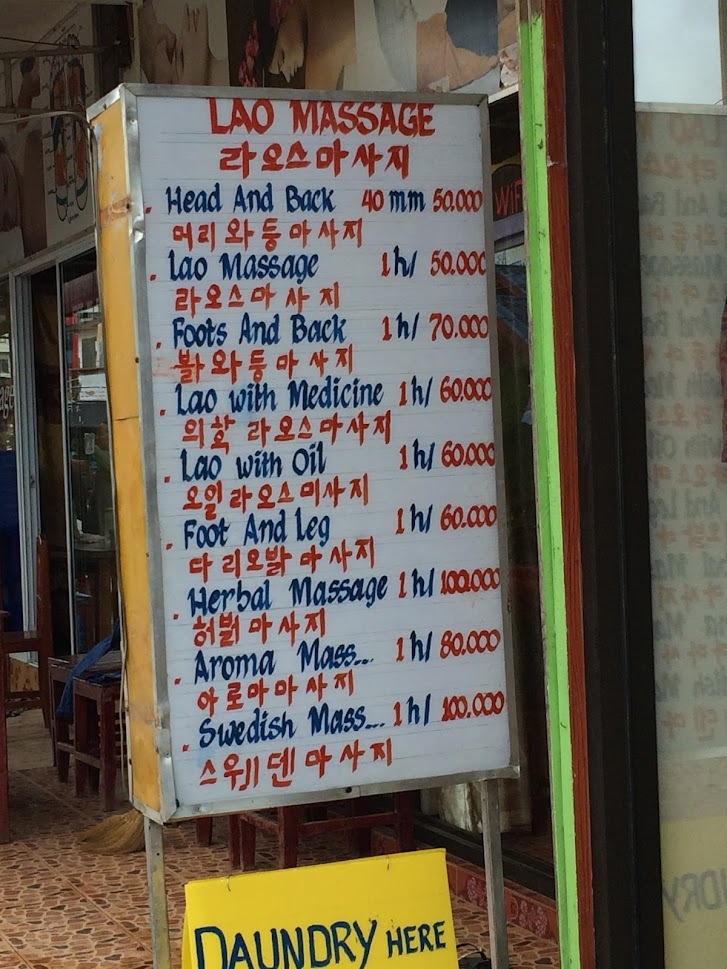 LAO MASSAGE
라오스마사지
Head And Back 40 mm 50.000
머리와등마사지
Lao Massage 1h/ 50.000
라오스마사지
Foots And Back 1h/ 70.000
발와등마사지
Lao with Medicine 1h/ 60.000
의학 라오스마사지
Lao with Oil 1h/ 60.000
오일라오스미사지
Foot And Leg 1h/ 60.000
다리오발마사지
Herbal Massage 1h/ 100.000
허벌마사지
Aroma Mass... 1h/ 80.000
아로마마사지
Swedish Mass... 1h/ 100.000
스우지덴마사지
WiF
DAUNDRY HERE